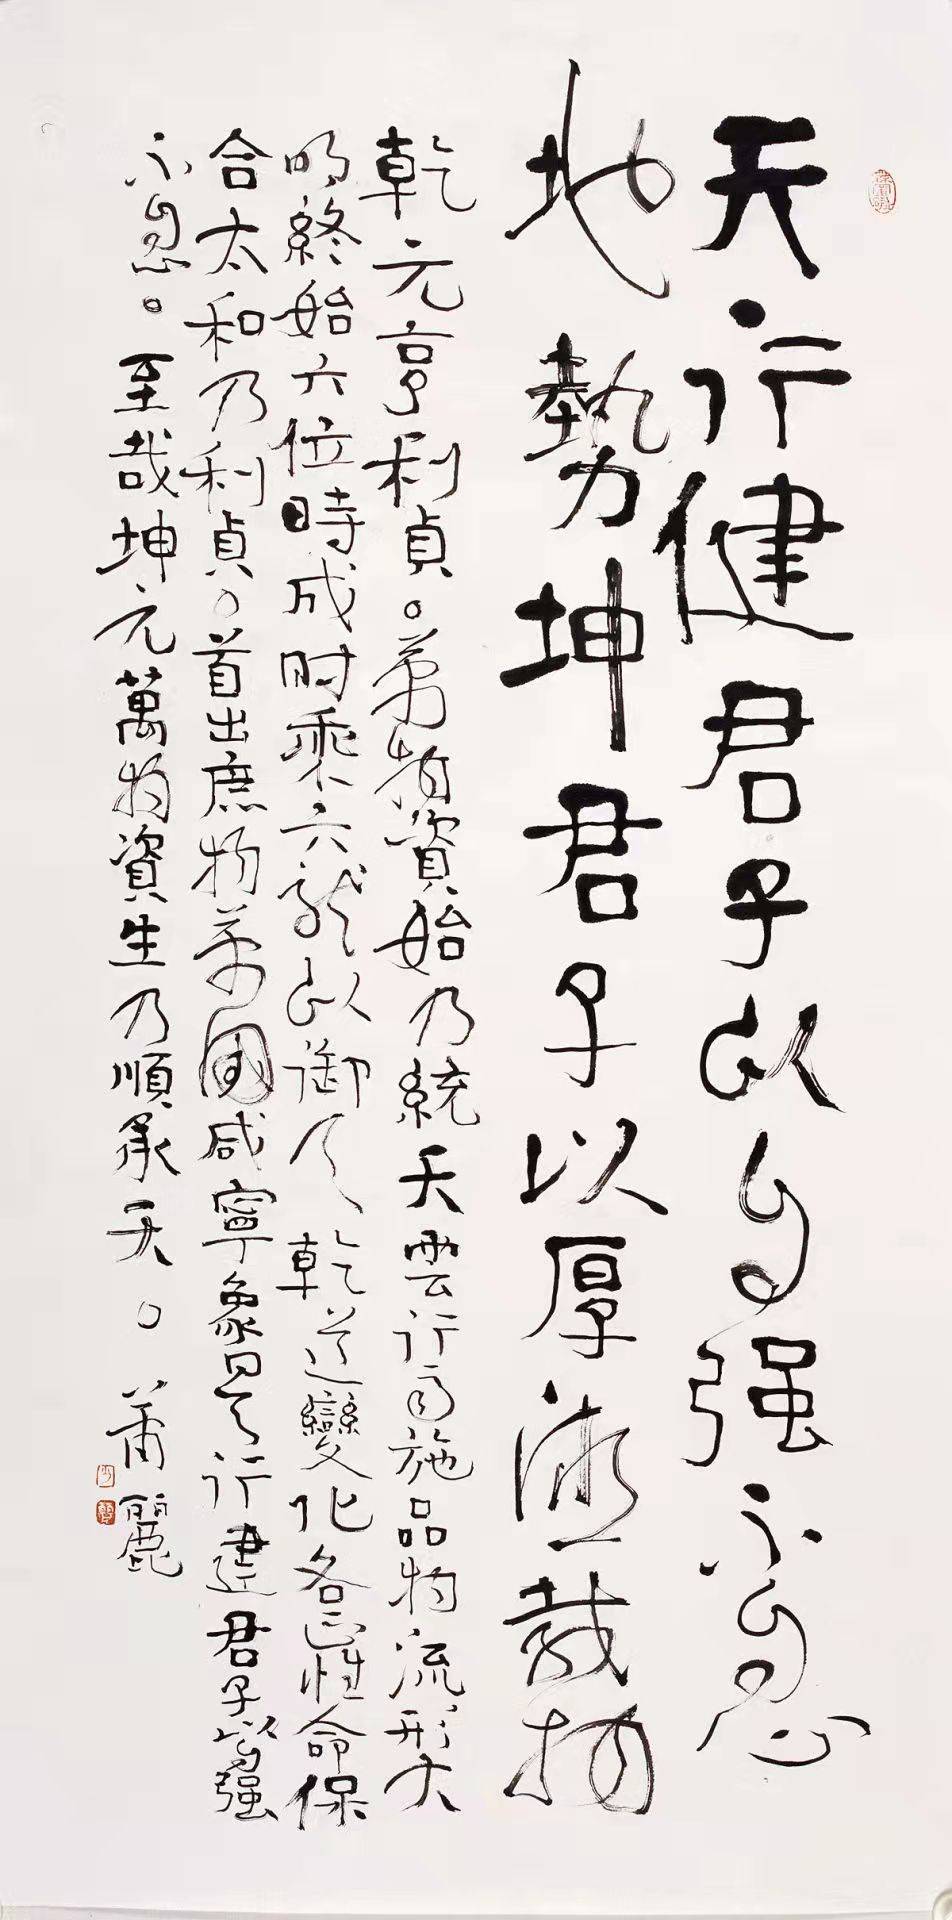 天行健君子以自强不息
地勢坤君子以厚德载物
乾元亨利貞。萬物資始乃統天雲行雨施品物流形大
明終始六位時成时乘六龙以御天乾道變化各正性命保
合太和乃利貞。首出庶物萬國咸寧象曰天行建君子以自强
不息。至哉坤元萬物資生乃順承天。蕭麗